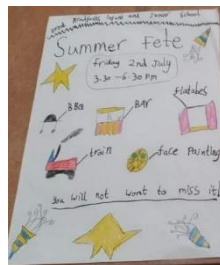 Infant and Junior School
Summer Fete
friday 2nd July
3.30 - 6.30 pm
BBQ
BAR
flatabes
train
face painting
you will not want to miss it!